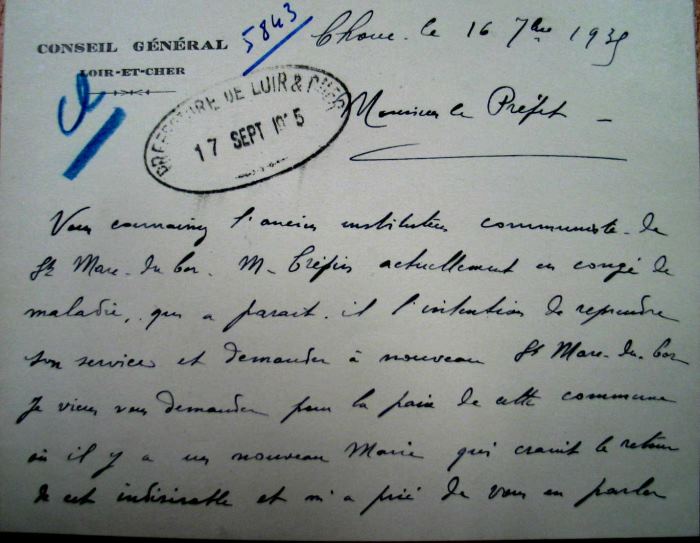 CONSEIL GÉNÉRAL
LOIR-ET-CHER
5843
Choue. le 16 7bre 1935
PREFECTURE DE LOIR & CHER
17 SEPT 1935
Monsieur le Préfet
Vous connaissez l'ancien instituteur communiste de
St Marc-du-Cor. M. Crépin actuellement en congé de
maladie, qui a parait-il l'intention de reprendre
son service et demander à nouveau St Marc-du-Cor
Je viens vous demander pour la paix de cette commune
où il y a un nouveau Maire qui craint le retour
de cet indésirable et m'a prié de vous en parler